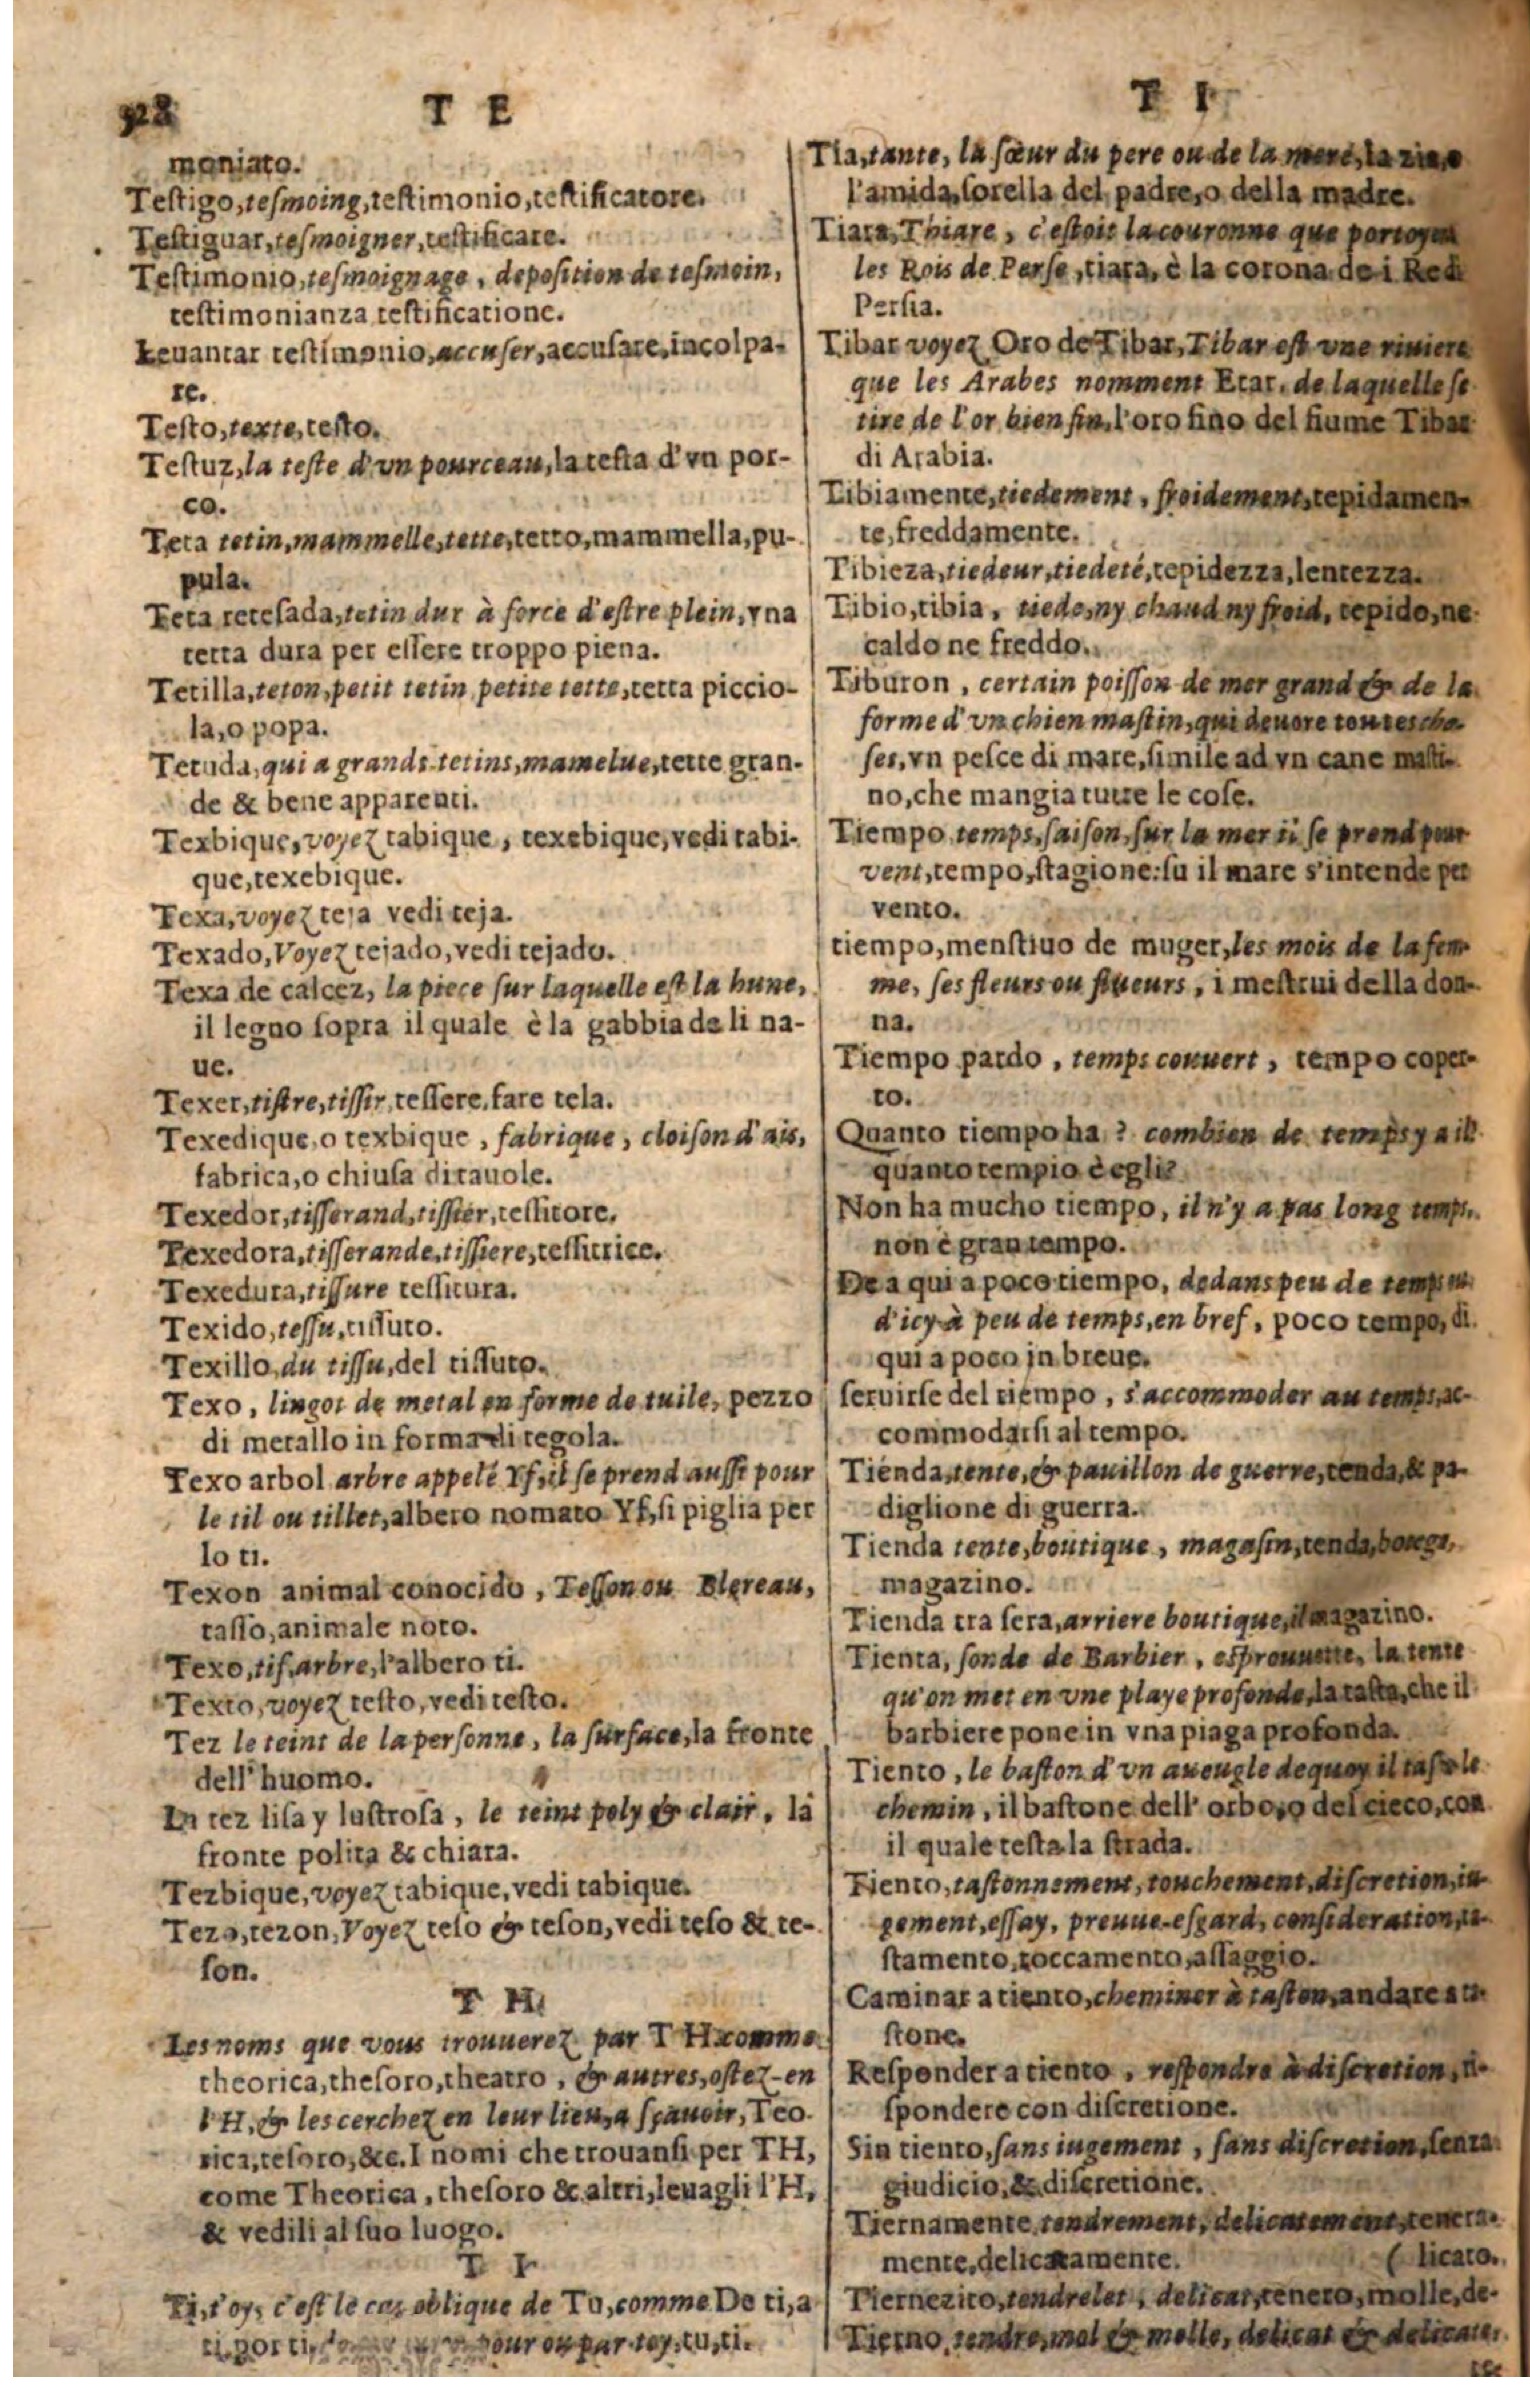 528
T E
moniato.
Testigo, tesmoing, testimonio, testificatore.
Testiguar, tesmoigner, testificare.
Testimonio, tesmoignage, deposition de tesmoin,
testimonianza testificatione.
Leuantar testimonio, accuser, accusare, incolpa-
re.
Testo, texte, testo.
Testuz, la teste d'vn pourceau, la testa d'vn por-
co.
Teta tetin, mammelle, tette, tetto, mammella, pu-
pula.
Teta retesada, tetin dur à force d'estre plein, vna
tetta dura per essere troppo piena.
Tetilla, teton, petit tetin petite tette, tetta piccio-
la, o popa.
Tetuda, qui a grands tetins, mamelue, tette gran-
de & bene apparenti.
Texbique, voyez tabique, texebique, vedi tabi-
que, texebique.
Texa, voyez teja vedi teja.
Texado, Voyez tejado, vedi tejado.
Texa de calcez, la piece sur laquelle est la hune,
il legno sopra il quale è la gabbia de li na-
ue.
Texer, tistre, tissir, tessere, fare tela.
Texedique o texbique, fabrique, cloison d'ais,
fabrica, o chiusa di tauole.
Texedor, tisserand, tissier, tessitore.
Texedora, tisserande, tissiere, tessitrice.
Texedura, tissure tessitura.
Texido, tessu, tissuto.
Texillo, du tissu, del tissuto.
Texo, lingot de metal en forme de tuile, pezzo
di metallo in forma di tegola.
Texo arbol arbre appelé Yf, il se prend aussi pour
le til ou tillet, albero nomato Yf, si piglia per
lo ti.
Texon animal conocido, Tesson ou Blereau,
tasso, animale noto.
Texo, tif, arbre, l'albero ti.
Texto, voyez testo, vedi testo.
Tez le teint de la personne, la surface, la fronte
dell'huomo.
La tez lisa y lustrosa, le teint poly & clair, la
fronte polita & chiara.
Tezbique, voyez tabique, vedi tabique.
Tezo, tezon, Voyez teso & teson, vedi teso & te-
son.
T H
Les noms que vous trouuerez par T H comme
theorica, thesoro, theatro, & autres, ostez-en
l'H, & les cerchez en leur lieu, a sçauoir, Teo-
rica, tesoro, &c. I nomi che trouansi per TH,
come Theorica, thesoro & altri, leuagli l'H,
& vedili al suo luogo.
T I
Ti, toy, c'est le cas oblique de Tu, comme De ti, a
ti, por ti, pour ou par toy, tu, ti.
T I
Tia, tante, la sœur du pere ou de la mere, la zia, o
l'amida, sorella del padre, o della madre.
Tiara, Thiare, c'estoit la couronne que portoyent
les Rois de Perse, tiara, è la corona de i Re di
Persia.
Tibar voyez Oro de Tibar, Tibar est vne riuiere
que les Arabes nomment Etar, de laquelle se
tire de l'or bien fin, l'oro fino del fiume Tibar
di Arabia.
Tibiamente, tiedement, froidement, tepidamen-
te, freddamente.
Tibieza, tiedeur, tiedeté, tepidezza, lentezza.
Tibio, tibia, tiede, ny chaud ny froid, tepido, ne
caldo ne freddo.
Tiburon, certain poisson de mer grand & de la
forme d'vn chien mastin, qui deuore toutes cho-
ses, vn pesce di mare, simile ad vn cane masti-
no, che mangia tutte le cose.
Tiempo temps, saison, sur la mer il se prend pour
vent, tempo, stagione: su il mare s'intende per
vento.
tiempo, menstiuo de muger, les mois de la fem-
me, ses fleurs ou flueurs, i mestrui della don-
na.
Tiempo pardo, temps couuert, tempo coper-
to.
Quanto tiempo ha? combien de temps y a il
quanto tempio è egli?
Non ha mucho tiempo, il n'y a pas long temps,
non è gran tempo.
De a qui a poco tiempo, dedans peu de temps ou
d'icy à peu de temps, en bref, poco tempo, di
qui a poco in breue.
seruirse del tiempo, s'accommoder au temps, ac-
commodarsi al tempo.
Tienda, tente, & pauillon de guerre, tenda, & pa-
diglione di guerra.
Tienda tente, boutique, magasin, tenda, botega,
magazino.
Tienda tra sera, arriere boutique, il magazino.
Tienta, sonde de Barbier, esprouuette, la tente
qu'on met en vne playe profonde, la tasta, che il
barbiere pone in vna piaga profonda.
Tiento, le baston d'vn aueugle dequoy il taste le
chemin, il bastone dell' orbo, o del cieco, con
il quale testa la strada.
Tiento, tastonnement, touchement, discretion, iu-
gement, essay, preuue esgard, consideration, ta-
stamento, toccamento, assaggio.
Caminar a tiento, cheminer à taston, andare a ta-
stone.
Responder a tiento, respondre à discretion, ri-
spondere con discretione.
Sin tiento, sans iugement, sans discretion, senza
giudicio, & discretione.
Tiernamente tendrement, delicatement, tenera-
mente, delicatamente. ( licato.
Tiernezito, tendrelet, delicat, tenero, molle, de-
Tierno, tendre, mol & molle, delicat & delicate,